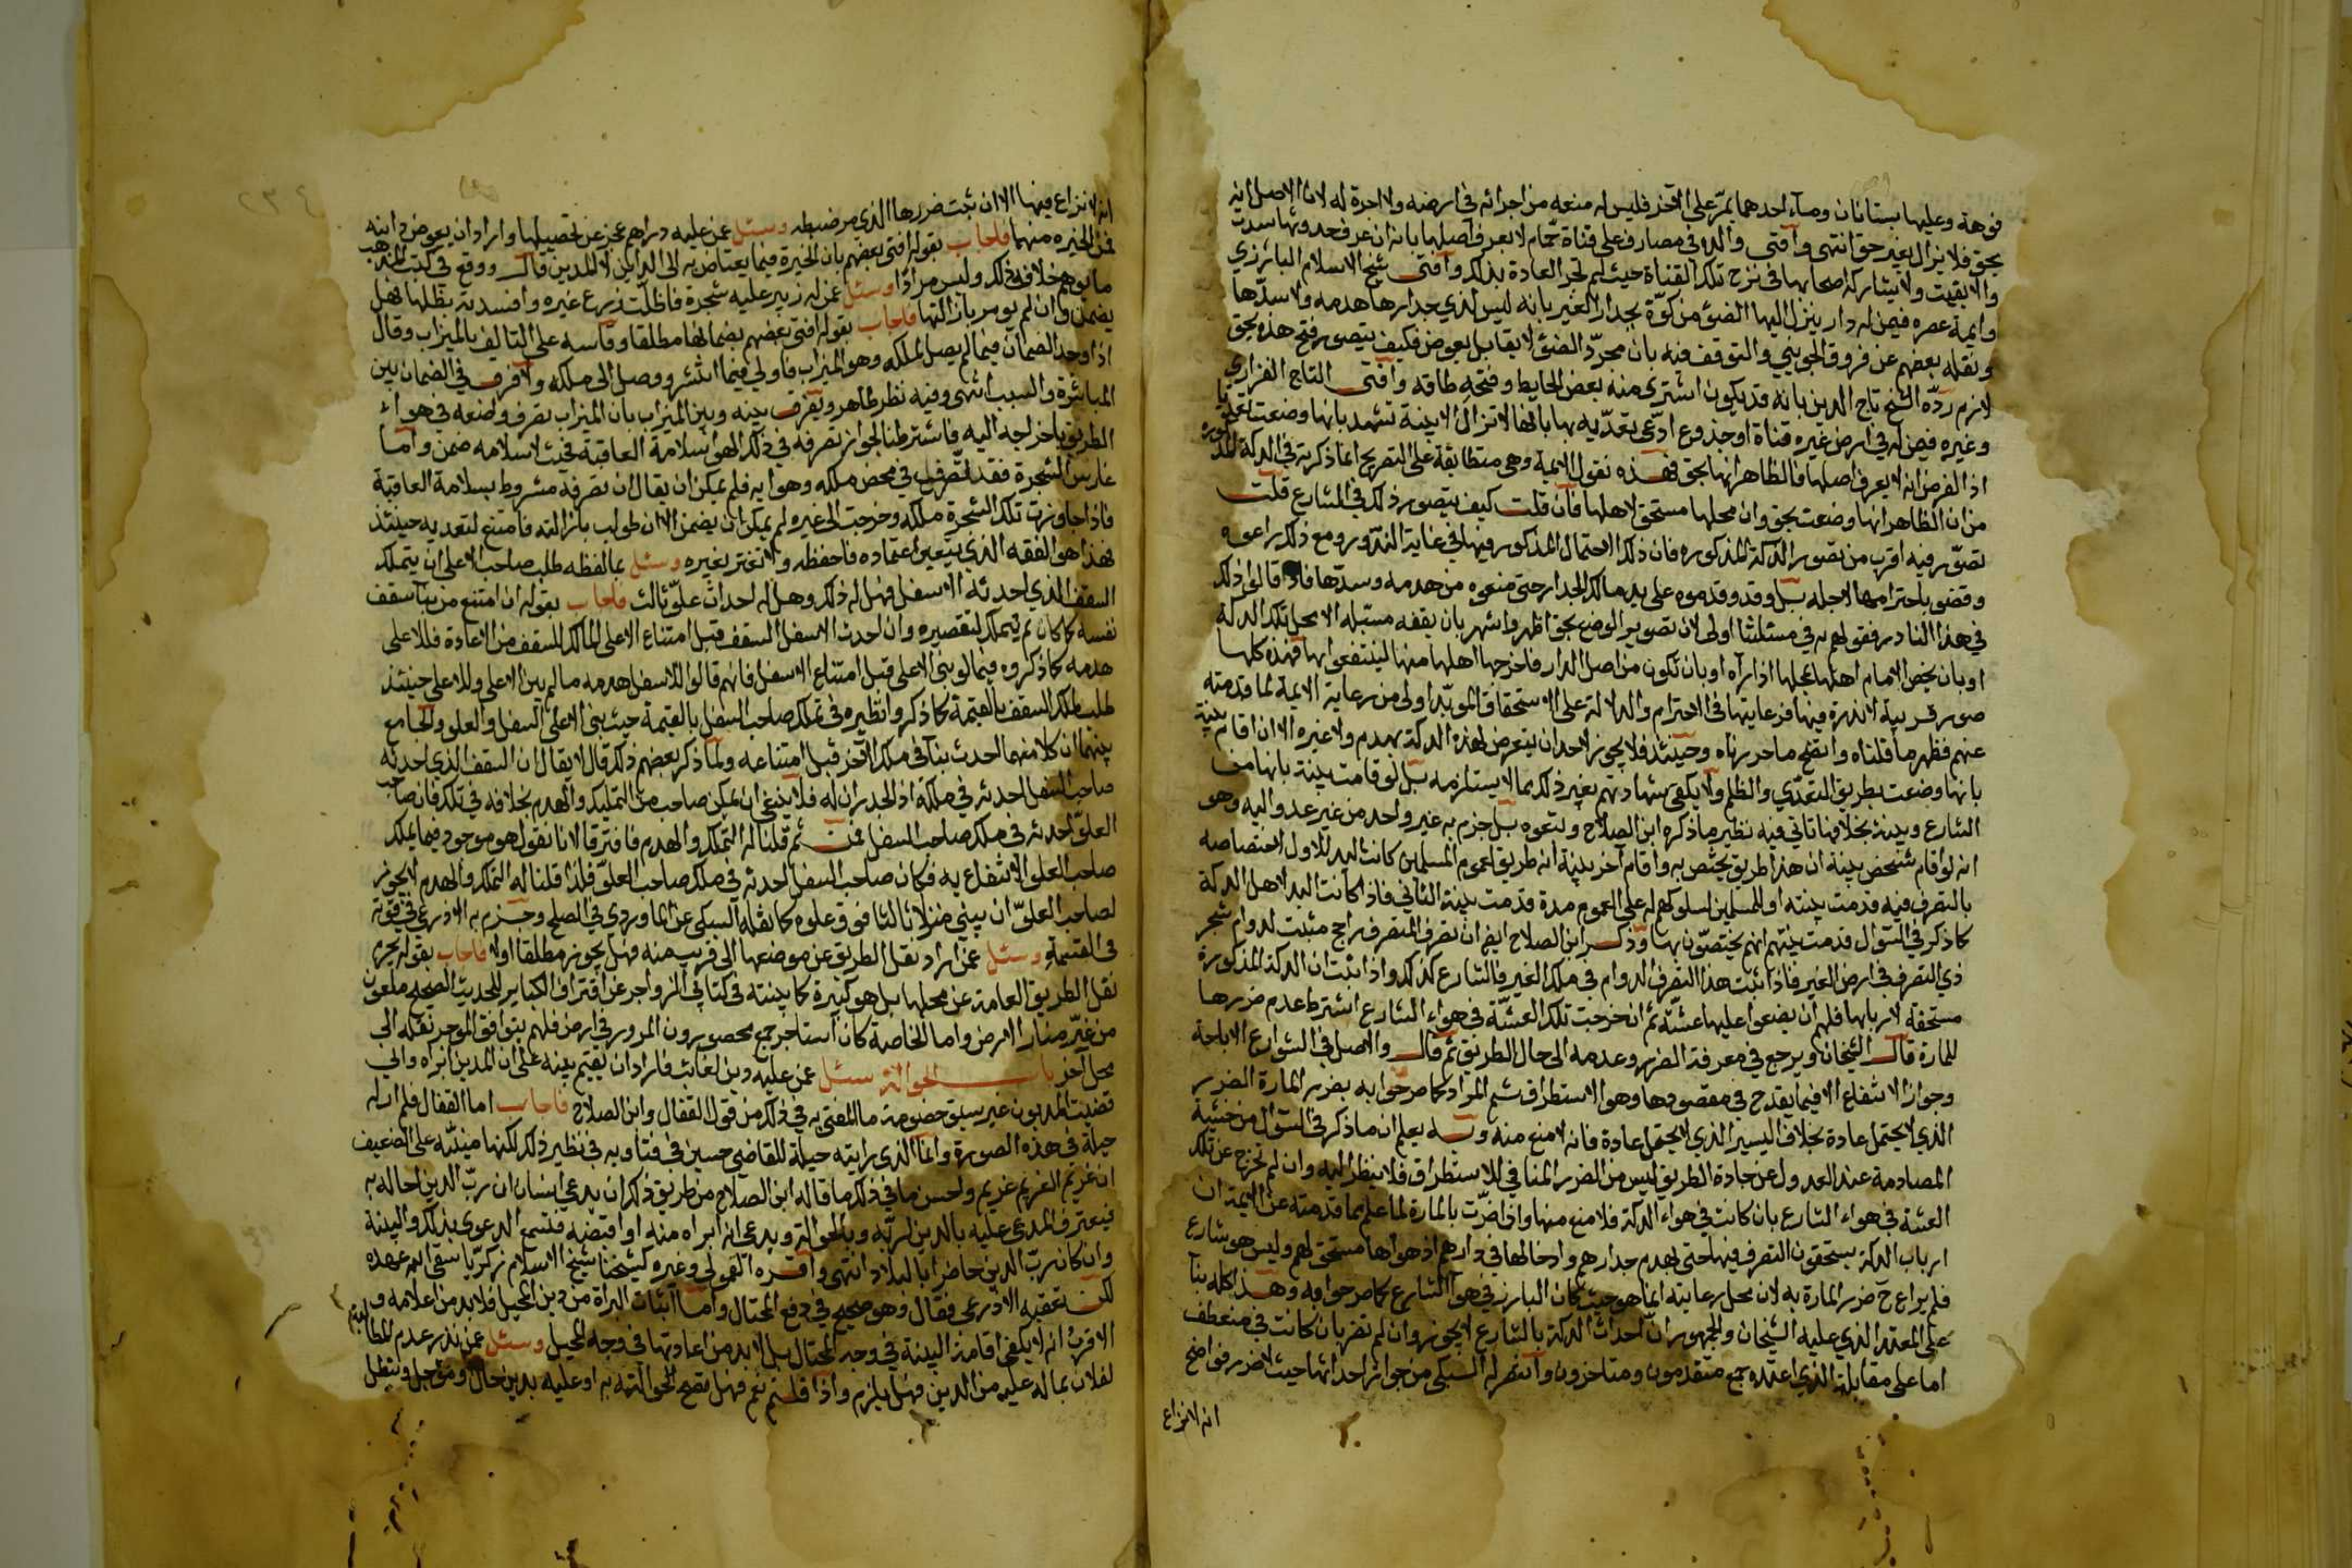 فوهة وعليها بستانان وماء احدهما يمرّ على الآخر فليس له منعه من اجرائه في ارضه ولا اجرة له لان الاصل انه
بحق فلا يزال بغير حق انتهى وأفتى والده في مصارف على قناة حمّام لا يعرف اصلها بانه ان عرف حدوثها سدت
والا بقيت ولا يشاركه اصحابها في نزح تلك القناة حيث لم تجر العادة بذلك وأفتى شيخ الاسلام البارزي
وايمة عصره فيمن له دار ينزل اليها الضوء من كوّة بجدار الغير بانه ليس لذي جدارها هدمه ولا سدّها
ونقله بعضهم عن فروق الجويني والتوقف فيه بان مجرّد الضوء لا يقابل بعوض فكيف يتصور فتح هذه بحق
لازم ردّه الشيخ تاج الدين بانه قد يكون اشترى منه بعض الحايط وفتحه طاقه وأفتى التاج الفزاري
وغيره فيمن له في ارض غيره قناة او جذوع ادّعى تعدّيه بها بانها لا تزال الا ببينة تشهد بانها وضعت تعديا
اذ الفرض انه لا يعرف اصلها فالظاهر انها بحق فهذه نقول الايمة وهي متطابقة على التصريح بما ذكرته في الدكة المذكوره
من ان الظاهر انها وضعت بحق وان محلها مستحق لاهلها فان قلت كيف يتصور ذلك في الشارع قلت
تصوّر فيه اقرب من تصور الدكة المذكوره فان ذلك الاحتمال المذكور فيها في غاية الندور ومع ذلك راعوه
وقضوا باحترامها لاجله بل وقد وقدموه على يد مالك الجدار حتى منعوه من هدمه وسدّها فاذا قالوا ذلك
في هذا النادر فقولهم به في مسئلتنا اولى لان تصوير الوضع بحق اظهر واشهر بان يقفه مسبّله الا محل تلك الدكة
او بان يخص الامام اهلها بمحلها اذا رآه او بان تكون من اصل الدار فاخرجها اهلها منها لينتفعوا بها فهذه كلها
صور قريبة لا ندرة فيها فرعايتها في الاحترام والدلالة على الاستحقاق المؤبّد اولى من رعاية الايمة لما قدمته
عنهم فظهر ما قلناه واتضح ما حررناه وحينئذ فلا يجوز لاحد ان يتعرض لهذه الدكة بهدم ولا غيره الا ان اقام بينة
بانها وضعت بطريق التعدّي والظلم ولا يكفى شهادتهم بغير ذلك مما لا يستلزمه بل لو قامت بينة بانها من
الشارع وبينة بخلافها تاتي فيه نظير ما ذكره ابن الصلاح وتبعوه بل جزم به غير واحد من غير عدواليه وهو
انه لو اقام شخص بينة ان هذا طريق يختص به واقام آخر بينة انه طريق لعموم المسلمين كانت اليد للاول لاختصاصه
بالتصرف فيه قدمت بينته او للمسلمين لسلوكهم له على العموم مدة قدمت بينة الثاني فاذا كانت اليد لاهل الدكة
كما ذكر في السؤال قدمت بينتهم انهم يختصّون بها وذكر ابن الصلاح ايضا ان تصرف المتصرف راجح مثبت لدوام شجر
ذي التصرف في ارض الغير فاذا ثبت هذا التصرف الدوام في ملك الغير فالشارع كذلك واذا ثبت ان الدكة المذكورة
مستحقه لاربابها فلهم ان يضعوا عليها عشّة ثم ان خرجت تلك العشّة في هواء الشارع اشترط عدم ضررها
للمارة قال الشيخان ويرجع في معرفة الضرر وعدمه الى حال الطريق ثم قال والاصل في الشوارع الاباحة
وجواز الانتفاع الا فيما يقدح في مقصودها وهو الاستطراق ثم المراد كما صرحوا به بضرر المارة الضرر
الذي لا يحتمل عادة بخلاف اليسير الذي لا يحتمل عادة فانه لا منع منه وبه يعلم ان ما ذكر في السؤال من خشية
المصادمة عند العدول عن جادة الطريق ليس من الضرر المنافي للاستطراق فلا ينظر اليه وان لم تخرج عن تلك
العشة في هواء الشارع بان كانت في هواء الدكة فلا منع منها وان اضرّت بالمارة لما علم مما قدمته عن الايمة ان
ارباب الدكة يستحقون التصرف فيها حتى لهدم جدارهم وادخالها في دارهم اذ هواءها مستحق لهم وليس هو شارع
فلم يراع ح ضرر المارة به لان محل رعايته انما هو حيث كان البارز في هوآ الشارع كما صرحوا به وهذا كله بنآ
على المعتمد الذي عليه الشيخان والجمهور ان احداث الدكة بالشارع لا يجوز وان لم تضر بان كانت في منعطف
اما على مقابله الذي اعتمده جمع متقدمون ومتاخرون وانتصر له السبكى من جواز احداثها حيث لا ضرر فواضح
انه لا نزاع
انه لا نزاع فيها الا ان ثبت ضررها الذي مر ضبطه وسئل عمن عليه دراهم عجز عن تحصيلها واراد ان يعوض دائنه
فمن الخيره منهما فاجاب بقوله افتى بعضهم بان الخيرة فيما يعتاض به الى الداين لا للمدين قال ووقع في كتب المذهب
ما يوهم خلاف ذلك وليس مرادًا وسئل عمن له زبير عليه شجرة فاظلت زرع غيره وافسدته بظلها هل
يضمن وان لم يومر بازالتها فاجاب بقوله افتى بعضهم بضمانها مطلقا وقاسه على التالف بالميزاب وقال
اذا وجد الضمان فيما لم يصل لملكه وهو الميزاب فاولي فيما انتشر ووصل الى ملكه ولا فرق في الضمان بين
المباشرة والسبب انتهى وفيه نظر ظاهر ويفرق بينه وبين الميزاب بان الميزاب تصرف وضعه في هواء
الطريق باخراجه اليه فاشترطنا لجواز تصرفه في ذلك الهوا سلامة العاقبة فحيث لا سلامه ضمن وأما
غارس الشجرة فقد تصرف في محض ملكه وهوايه فلم يمكن ان يقال ان تصرفه مشروط بسلامة العاقبة
فاذا جاوزت تلك الشجرة ملكه وخرجت الى غيره لم يمكن ان يضمن الا ان طولب بازالته فامتنع لتعديه حينئذ
فهذا هو الفقه الذي يتعين اعتماده فاحفظه ولا تغتر بغيره وسئل عما لفظه طلب صاحب الاعلى ان يتملك
السقف الذي احدثه الاسفل فهل له ذلك وهل له احداث علوّ ثالث فاجاب بقوله ان امتنع من بنآ سقف
نفسه كما كان ثم تملك لتقصيره وان احدث الاسفل السقف قبل امتناع الاعلى المالك للسقف من الاعادة فللاعلى
هدمه كما ذكروه فيما لو بنى الاعلى قبل امتناع الاسفل فانهم قالوا للاسفل هدمه ما لم يبن الاعلى وللاعلى حينئذ
طلب تملك السقف بالقيمة كما ذكروا نظيره في تملك صاحب السفل بالقيمة حيث بنى الاعلى السفل والعلو والجامع
بينهما ان كلا منهما احدث بنآ في ملك الآخر قبل امتناعه ولما ذكر بعضهم ذلك قال لا يقال ان السقف الذي احدثه
صاحب السفل احدثه في ملكه اذ الجدران له فلا ينبغي ان يمكن صاحب من التمليك والهدم بخلافه في تلك فان صاحب
العلوّ احدثه في ملك صاحب السفل فمن ثم قلنا له التملك والهدم فافترقا لانا نقول هو موجود فيما يملك
صاحب العلو الانتفاع به فكان صاحب السفل احدثه في ملك صاحب العلوّ فلذا قلنا له التملك والهدم لا يجوز
لصاحب العلوّ ان يبني منزلا ثالثا فوق علوه كما نقله السبكي عن الماوردي في الصلح وجزم به الاذرعي في قوته
في القسمة وسئل عمن اراد نقل الطريق عن موضعها الى قريب منه فهل يجوز مطلقا او لا فاجاب بقوله يحرم
نقل الطريق العامة عن محلها بل هو كبيرة كما بينته في كتابي الزواجر عن اقتراف الكباير للحديث الصحيح ملعون
من غيّر منار الارض واما الخاصة كان استاجر جمع محصورون المرور في ارض فلهم بتوافق الموجر نقله الى
محل آخر باب الحوالة سئل عمن عليه دين لغائب فاراد ان يقيم بينة على ان المدين ابراه والى
قضيت المديون غير سبق خصومة ما المفتى به في ذلك من قول القفال وابن الصلاح فاجاب اما القفال فلم ار له
حيلة في هذه الصورة وانما الذي رايته حيلة للقاضي حسين في فتاويه في نظير ذلك لكنها مبنيّه على الضعيف
ان غريم الغريم غريم واحسن ما في ذلك ما قاله ابن الصلاح من طريق ذلك ان يدعي انسان ان ربّ الدين احاله به
فيعترف المدعى عليه بالدين لربّه وبالحوالة ويدعي انه ابراه منه او اقبضه فتسمع الدعوى بذلك والبينة
وان كان ربّ الدين حاضرا بالبلد انتهى وأقره القمولي وغيره كشيخنا شيخ الاسلام زكريّا سقى الله عهده
لكن تعقبه الاذرعي فقال وهو صحيح في دفع المحتال واما اثبات البراة من دين المحيل فلابد من اعلامه و
الاقرب انه لا يكفى اقامة البينة في وجه المحتال بل لابد من اعادتها في وجه المحيل وسئل عمن نذر عدم المطالبه
لفلان بما له عليه من الدين فهل يلزم واذا قلتم نعم فهل تصح الحوالة به او عليه بدين حال او مؤجل وتبطل